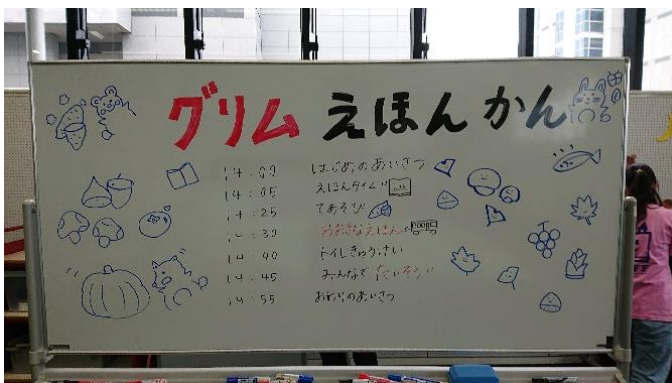 グリム えほんかん
14:00 はじめのあいさつ
14:05 えほんタイム!!
14:25 てあそび
14:30 おおきなえほん
14:40 トイレきゅうけい
14:45 みんなで たいそう
14:55 おわりのあいさつ